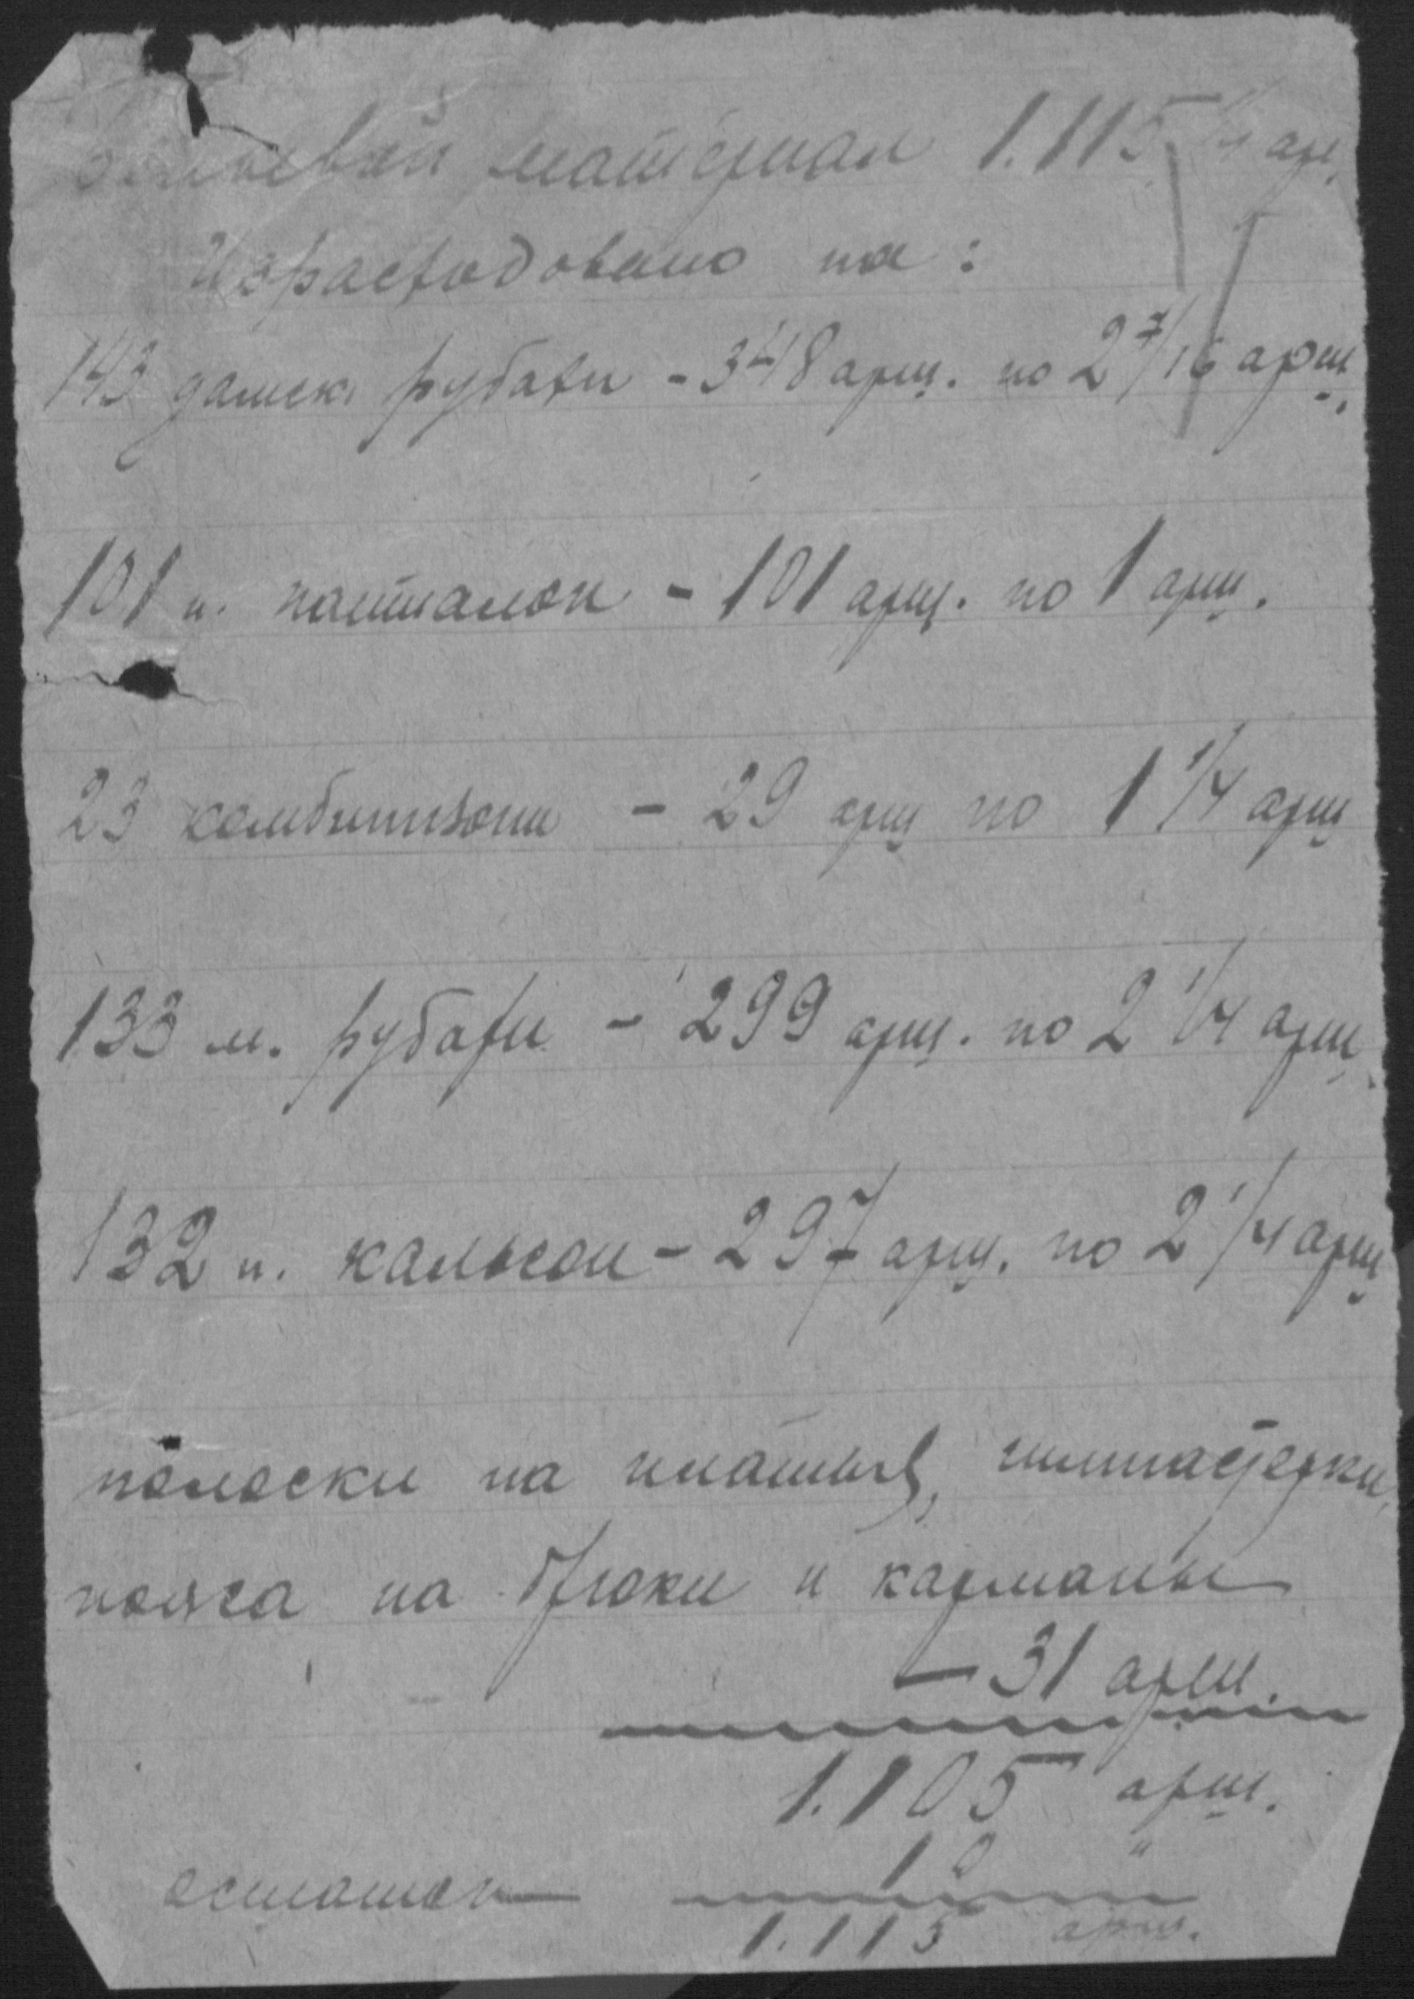 Бельевой материал 1.115 1/4 арш.
Израсходовано на:
143 дамск. рубахи - 348 арш. по 2 7/16 арш.
101 п. панталон - 101 арш. по 1 арш.
23 комбинизони - 29 арш по 1 1/4 арш
133 м. рубахи - 299 арш. по 2 1/4 арш.
132 п. кальсон - 297 арш. по 2 1/4 арш
полоски на платья, гимнастерки,
пояса на брюки и карманы
— 31 арш.
1.105 арш.
остаток 10 "
1.115 арш.